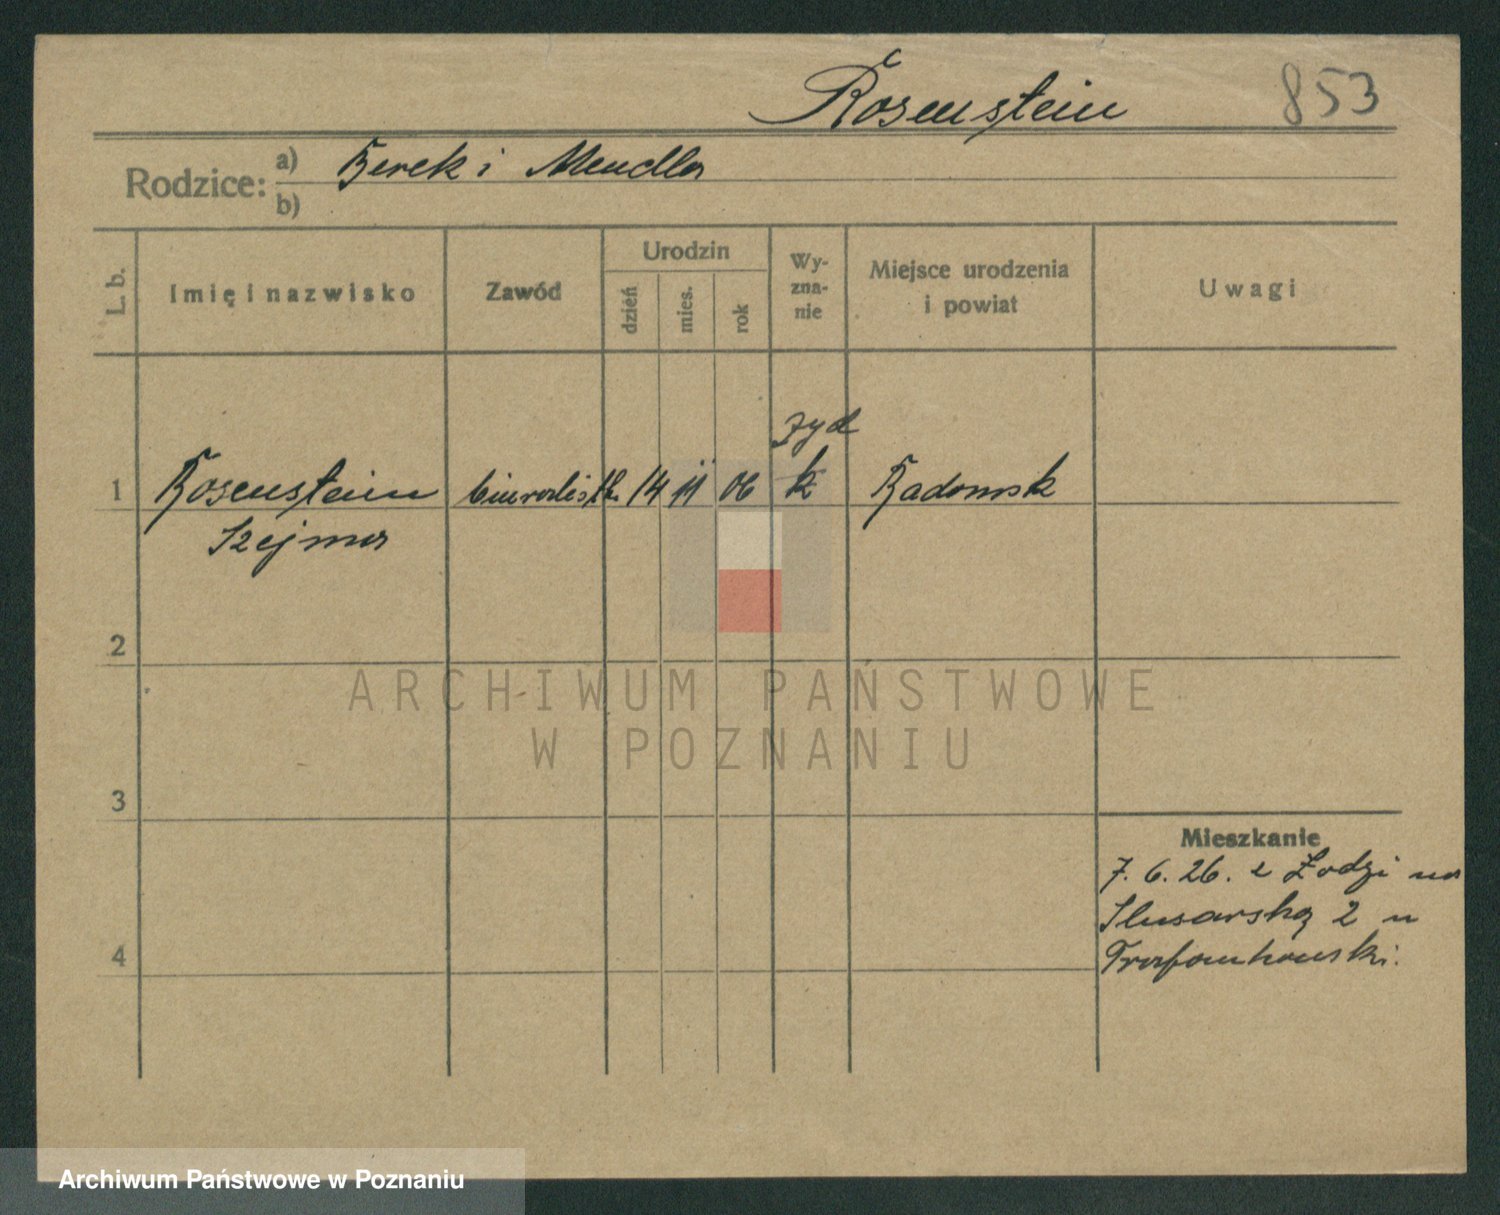 Rosenstein 853
Rodzice: a) Berek i Mendla
b)
L. b.
Imię i nazwisko
Zawód
Urodzin
dzień
mies.
rok
Wy-
zna-
nie
Miejsce urodzenia
i powiat
Uwagi
żyd
1 Rosenstein biuralistka 14 11 06 k Radomsk
Szejma
2
ARCHIWUM PAŃSTWOWE
W POZNANIU
3
Mieszkanie
7. 6. 26. z Łodzi na
Ślusarską 2 u
4
Archiwum Państwowe w Poznaniu